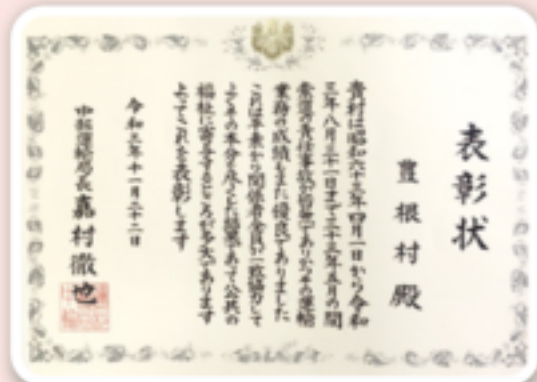 表彰状
豊根村殿
貴村は昭和六十三年四月一日から令和
三年八月三十一日まで三十三年五月の間
業務の成績もまた優良でありました
これは平素から関係者全員が一致協力して
よくその本分を尽くした結果であって公共の
福祉に寄与するところが多大であります
よってこれを表彰します
令和三年十一月二十二日
中部運輸局長 嘉村徹也